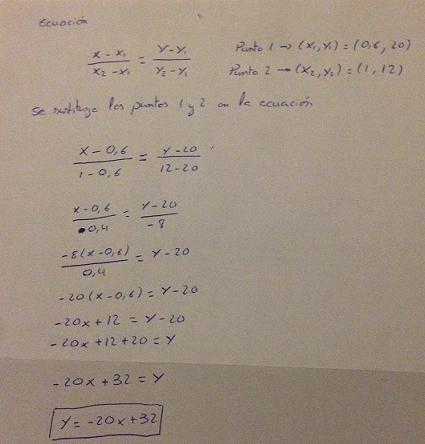 Ecuación
x-x₁/x₂-x₁ = y-y₁/y₂-y₁ Punto 1 → (x₁,y₁) = (0,6, 20)
Punto 2 → (x₂,y₂) = (1, 12)
Se sustituye los puntos 1 y 2 en la ecuación
x-0,6/1-0,6 = y-20/12-20
x-0,6/0,4 = y-20/-8
-8(x-0,6)/0,4 = y-20
-20(x-0,6) = y-20
-20x+12 = y-20
-20x+12+20 = y
-20x+32 = y
y = -20x+32